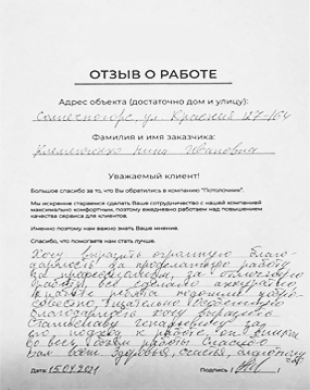 ОТЗЫВ О РАБОТЕ
Адрес объекта (достаточно дом и улицу):
Солнечногорс, ул. Красная 127-164
Фамилия и имя заказчика:
Нина Ивановна
Уважаемый клиент!
Большое спасибо за то, что Вы обратились в компанию "Потолочник".
Мы искренне стараемся сделать Ваше сотрудничество с нашей компанией
максимально комфортным, поэтому ежедневно работаем над повышением
качества сервиса для клиентов.
Именно поэтому нам важно знать Ваше мнение.
Спасибо, что помогаете нам стать лучше.
Хочу выразить огромную благо-
дарность за проделанную работу
за профессионализм, за отличную
работу, всё сделано аккуратно
к работе ребята подошли добро-
совестно, тщательно. Особенную
благодарность хочу выразить
Станиславу Геннадьевичу за
его подход к работе, он
во весь работы. Спасибо
Вам всем здоровья, счастья,
Дата: 15.04.2021
Подпись /